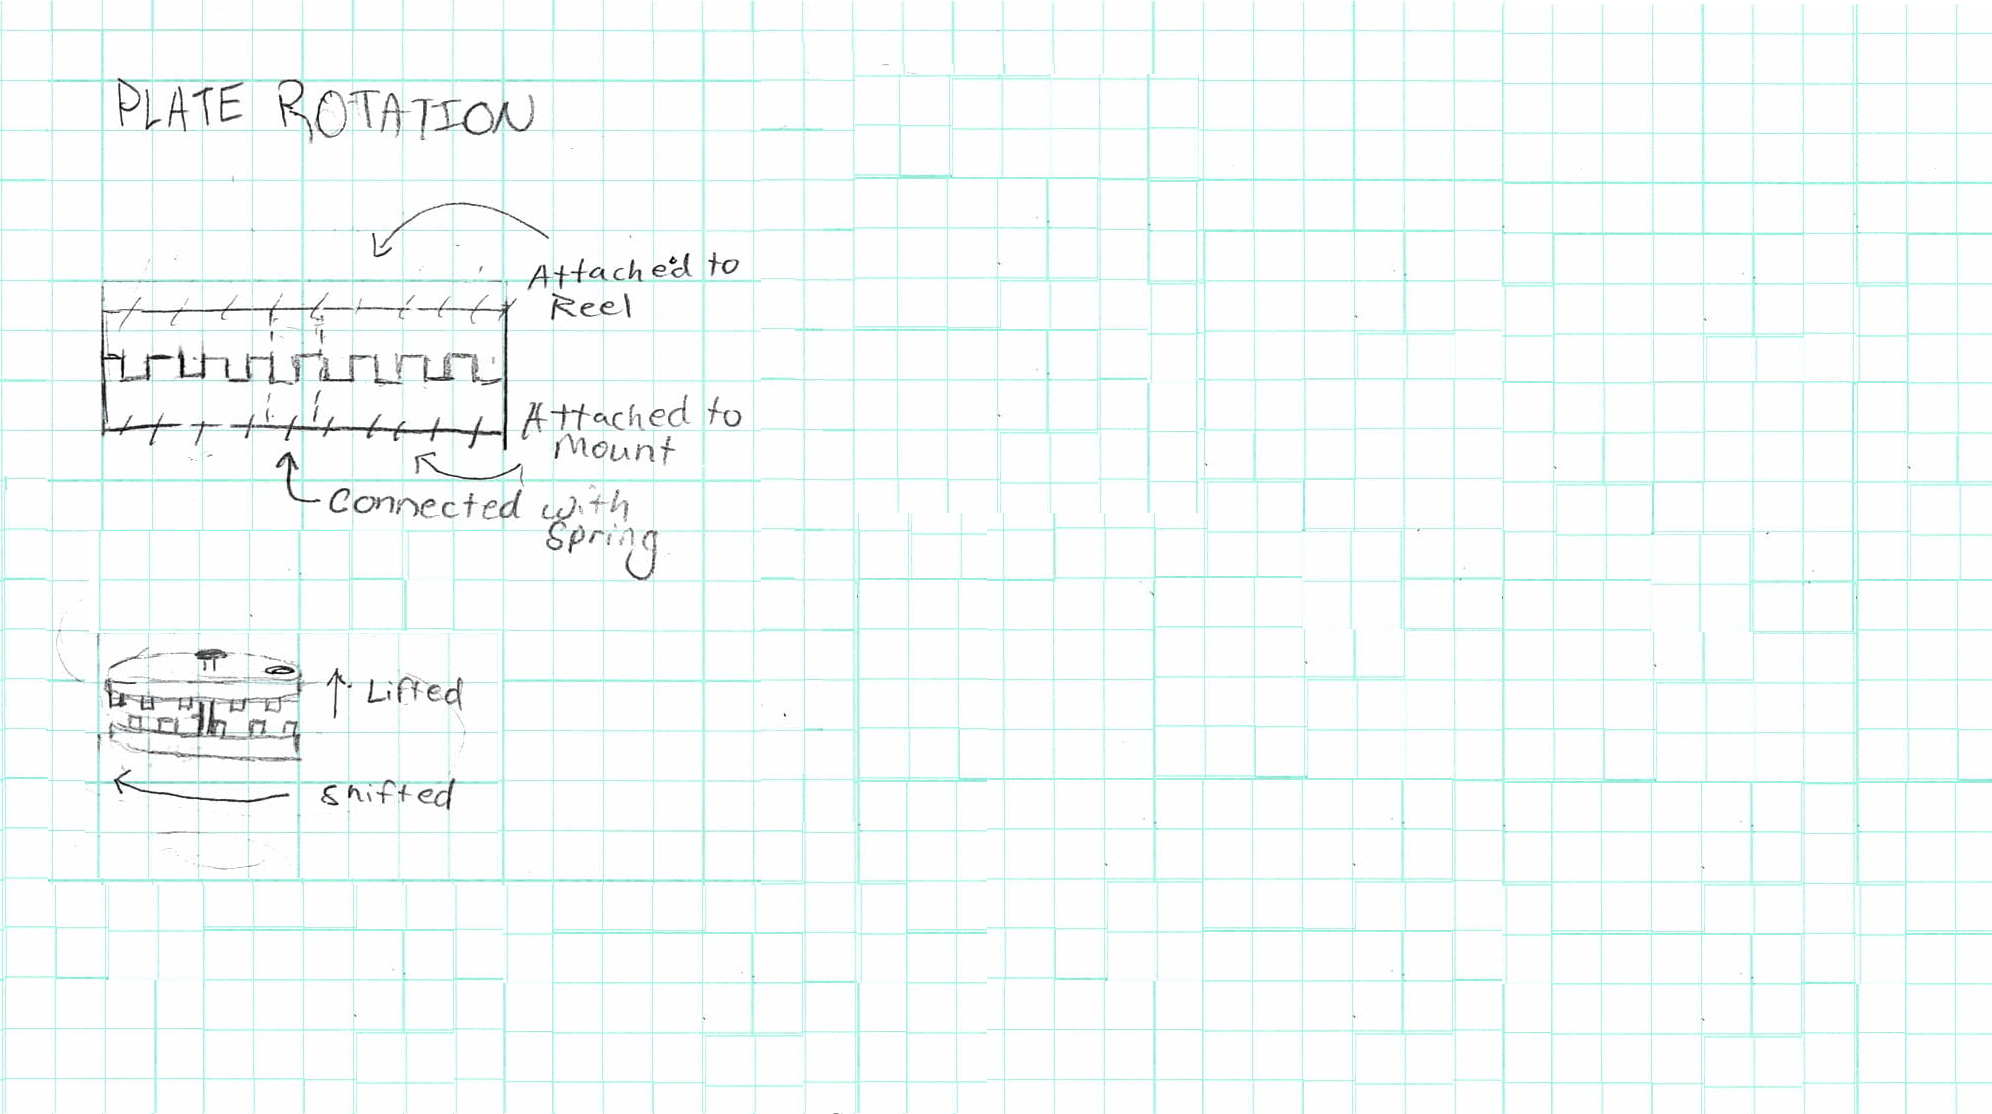 PLATE ROTATION
Attached to
Reel
Attached to
Mount
Connected with
Spring
Lifted
Shifted